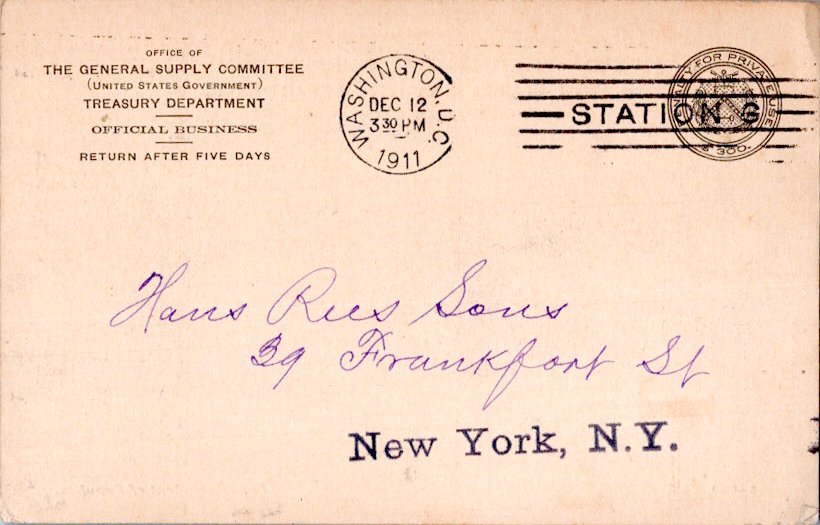 OFFICE OF
THE GENERAL SUPPLY COMMITTEE
(UNITED STATES GOVERNMENT)
TREASURY DEPARTMENT
OFFICIAL BUSINESS
RETURN AFTER FIVE DAYS
WASHINGTON, D.C.
DEC 12
3 30 PM
1911
STATION G
PENALTY FOR PRIVATE USE
$ 300.
Hans Rees Sons
39 Frankfort St
New York, N.Y.